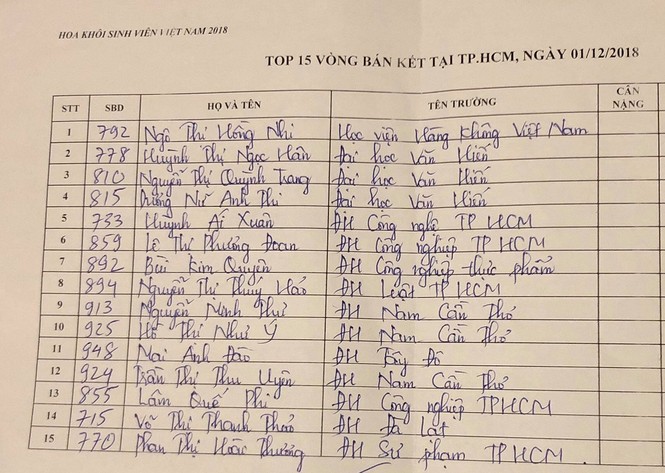 HOA KHÔI SINH VIÊN VIỆT NAM 2018
TOP 15 VÒNG BÁN KẾT TẠI TP.HCM, NGÀY 01/12/2018
STT SBD HỌ VÀ TÊN TÊN TRƯỜNG CÂN NẶNG
1 792 Ngô Thị Hồng Nhi Học viện Hàng Không Việt Nam
2 778 Huỳnh Thị Ngọc Hân Đại học Văn Hiến
3 810 Nguyễn Thị Quỳnh Trang Đại học Văn Hiến
4 815 Dương Nữ Anh Thi Đại học Văn Hiến
5 733 Huỳnh Ái Xuân ĐH Công nghệ TP HCM
6 859 Lê Thị Phương Đoan ĐH Công nghiệp TP HCM
7 892 Bùi Kim Quyên ĐH Công nghiệp thực phẩm
8 894 Nguyễn Thị Thúy Hảo ĐH Luật TP HCM
9 913 Nguyễn Minh Thư ĐH Nam Cần Thơ
10 925 Hồ Thị Như Ý ĐH Nam Cần Thơ
11 948 Mai Anh Đào ĐH Tây Đô
12 924 Trần Thị Thu Uyên ĐH Nam Cần Thơ
13 855 Lâm Quế Phi ĐH Công nghiệp TPHCM
14 715 Võ Thị Thanh Thảo ĐH Đà Lạt
15 770 Phan Thị Hoài Thương ĐH Sư phạm TPHCM